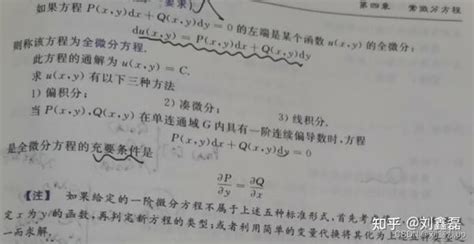 要求)
第四章 常微分方程
如果方程 P(x,y)dx+Q(x,y)dy=0 的左端是某个函数 u(x,y) 的全微分:
du(x,y)=P(x,y)dx+Q(x,y)dy
则称该方程为全微分方程.
此方程的通解为 u(x,y)=C.
求 u(x,y) 有以下三种方法
1) 偏积分; 2) 凑微分; 3) 线积分.
当 P(x,y),Q(x,y) 在单连通域 G 内具有一阶连续偏导数时,方程
P(x,y)dx+Q(x,y)dy=0
是全微分方程的充要条件是
∂P/∂y=∂Q/∂x
【注】 如果给定的一阶微分方程不属于上述五种标准形式,首先考
定 x 为 y 的函数,再判定新方程的类型;或者利用简单的变量代换将其化为上
一而求解.
知乎 @刘鑫磊